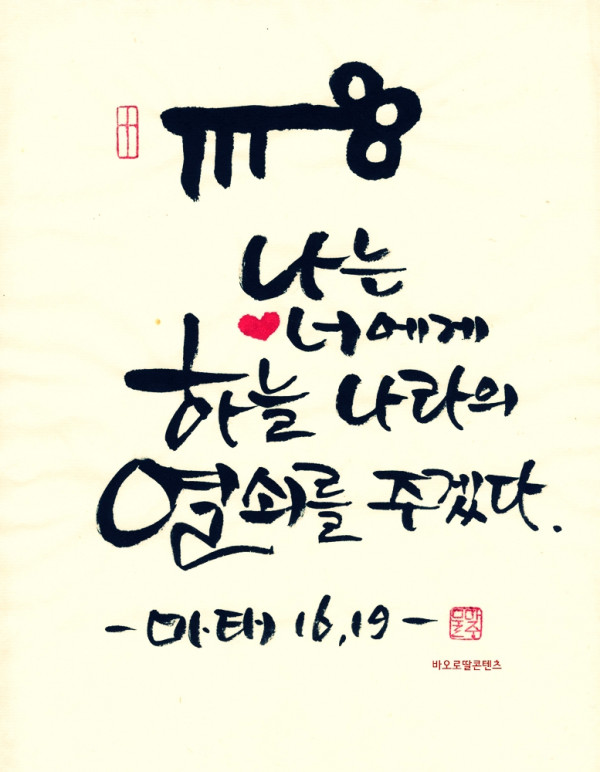 나는
너에게
하늘 나라의
열쇠를 주겠다.
- 마태 16,19 -
바오로딸콘텐츠